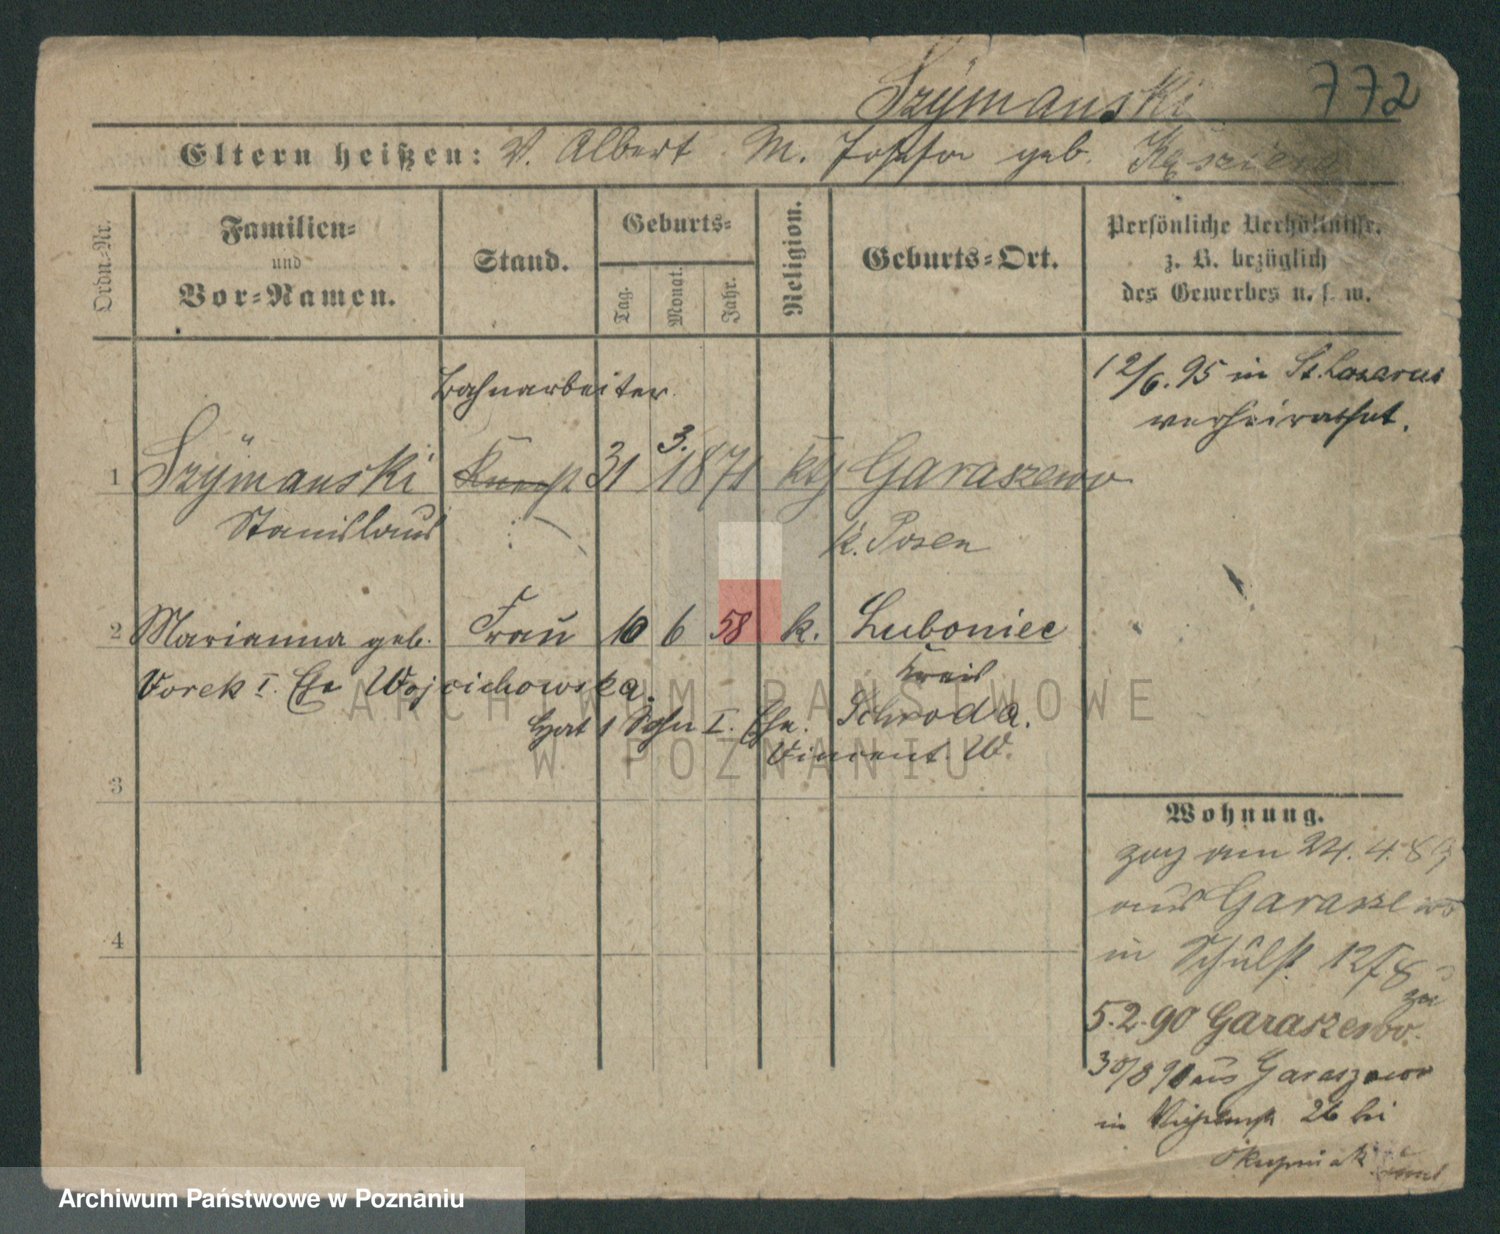 Szymanski 772
Eltern heißen: V. Albert M. Josefa geb.
Ordn.-Nr.
Familien-
und
Vor-Namen.
Stand.
Geburts-
Tag.
Monat.
Jahr.
Religion.
Geburts-Ort.
Persönliche Verhältnisse.
z. B. bezüglich
des Gewerbes u. s. w.
12/6. 95 in St. Lazarus
verheirathet.
Bahnarbeiter
1 Szymanski 31 3. 1871 ktg Garaszewo
Stanislaus K. Posen
2 Marianna geb. Frau 10 6 58 k. Luboniec
Vorek I. Ehe Wojcichowska. Kreis
Hat 1 Sohn I. Ehe. Schroda.
Vincent W.
3
4
Wohnung.
zog am 24. 4. 89
aus Garaszewo
in Schulst. 12
5.2.90 Garaszewo.
30/8 90 aus Garaszewo
in 26 bei
ARCHIWUM PAŃSTWOWE
W POZNANIU
Archiwum Państwowe w Poznaniu